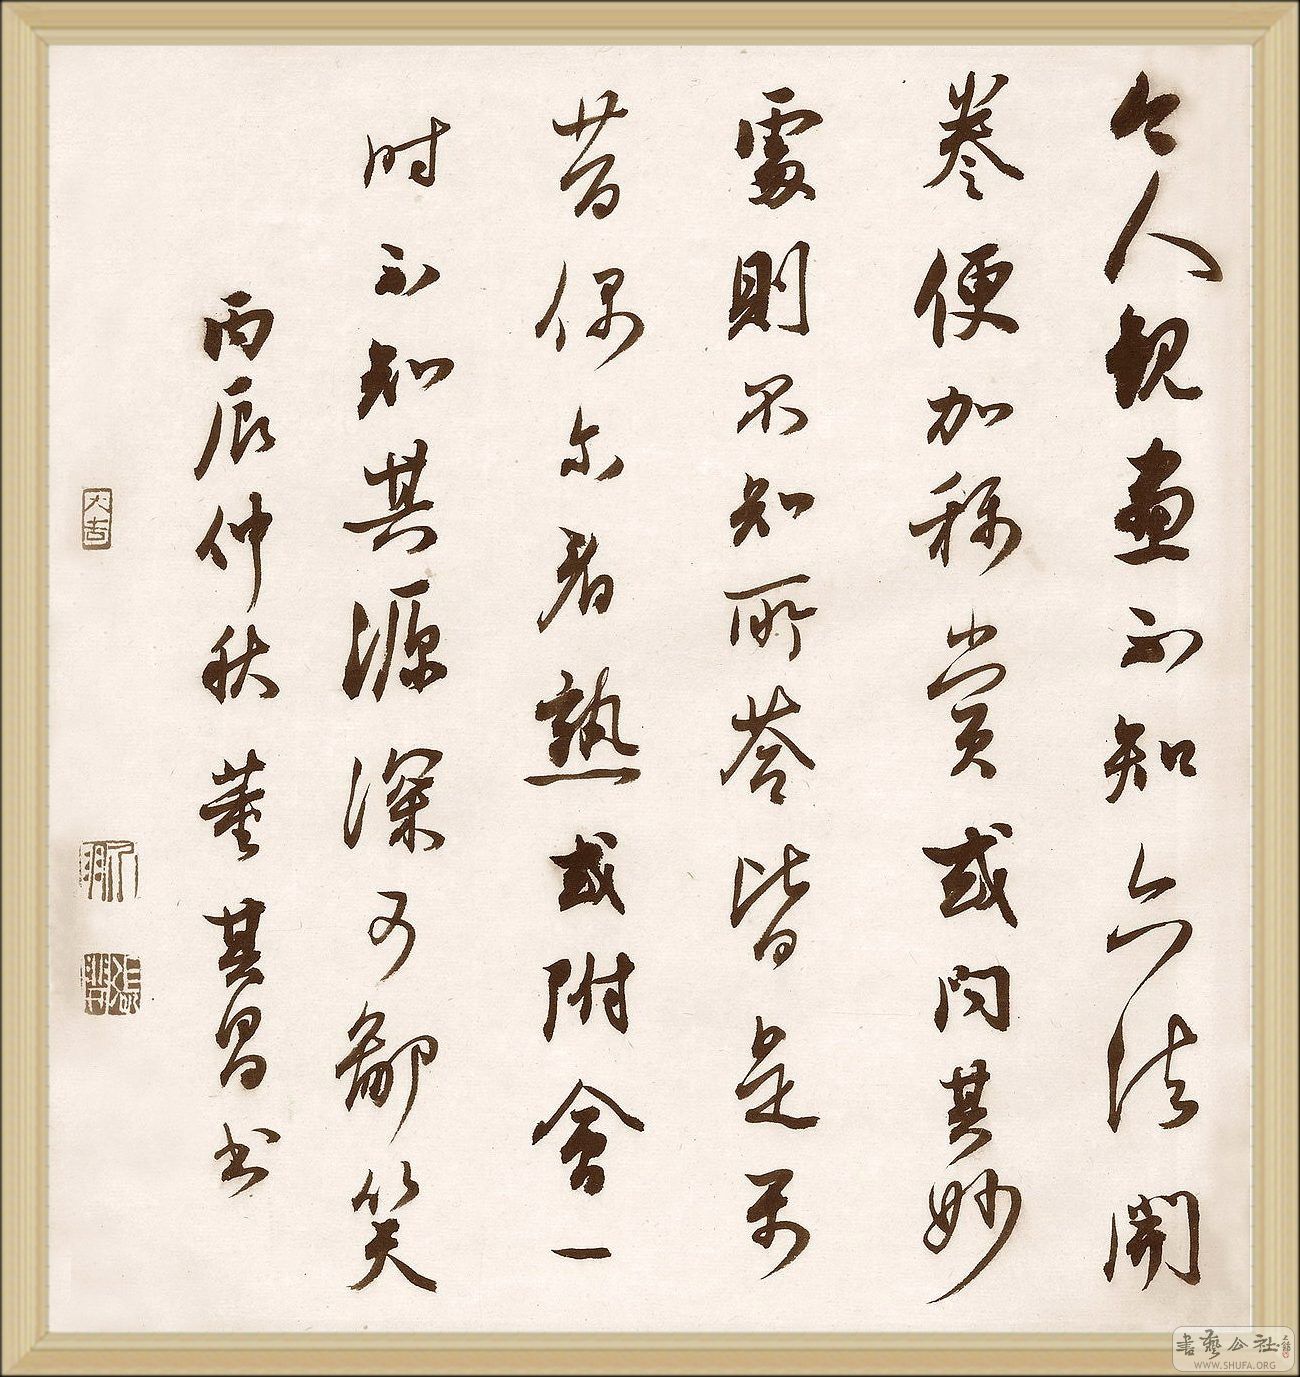 今人觀畫不知六法開
卷便加稱賞或問其妙
處則不知所荅皆是平
昔偶尔看熟或附會一
时不知其源深可鄙笑
丙辰仲秋董其昌书
大吉
書藝公社
WWW.SHUFA.ORG